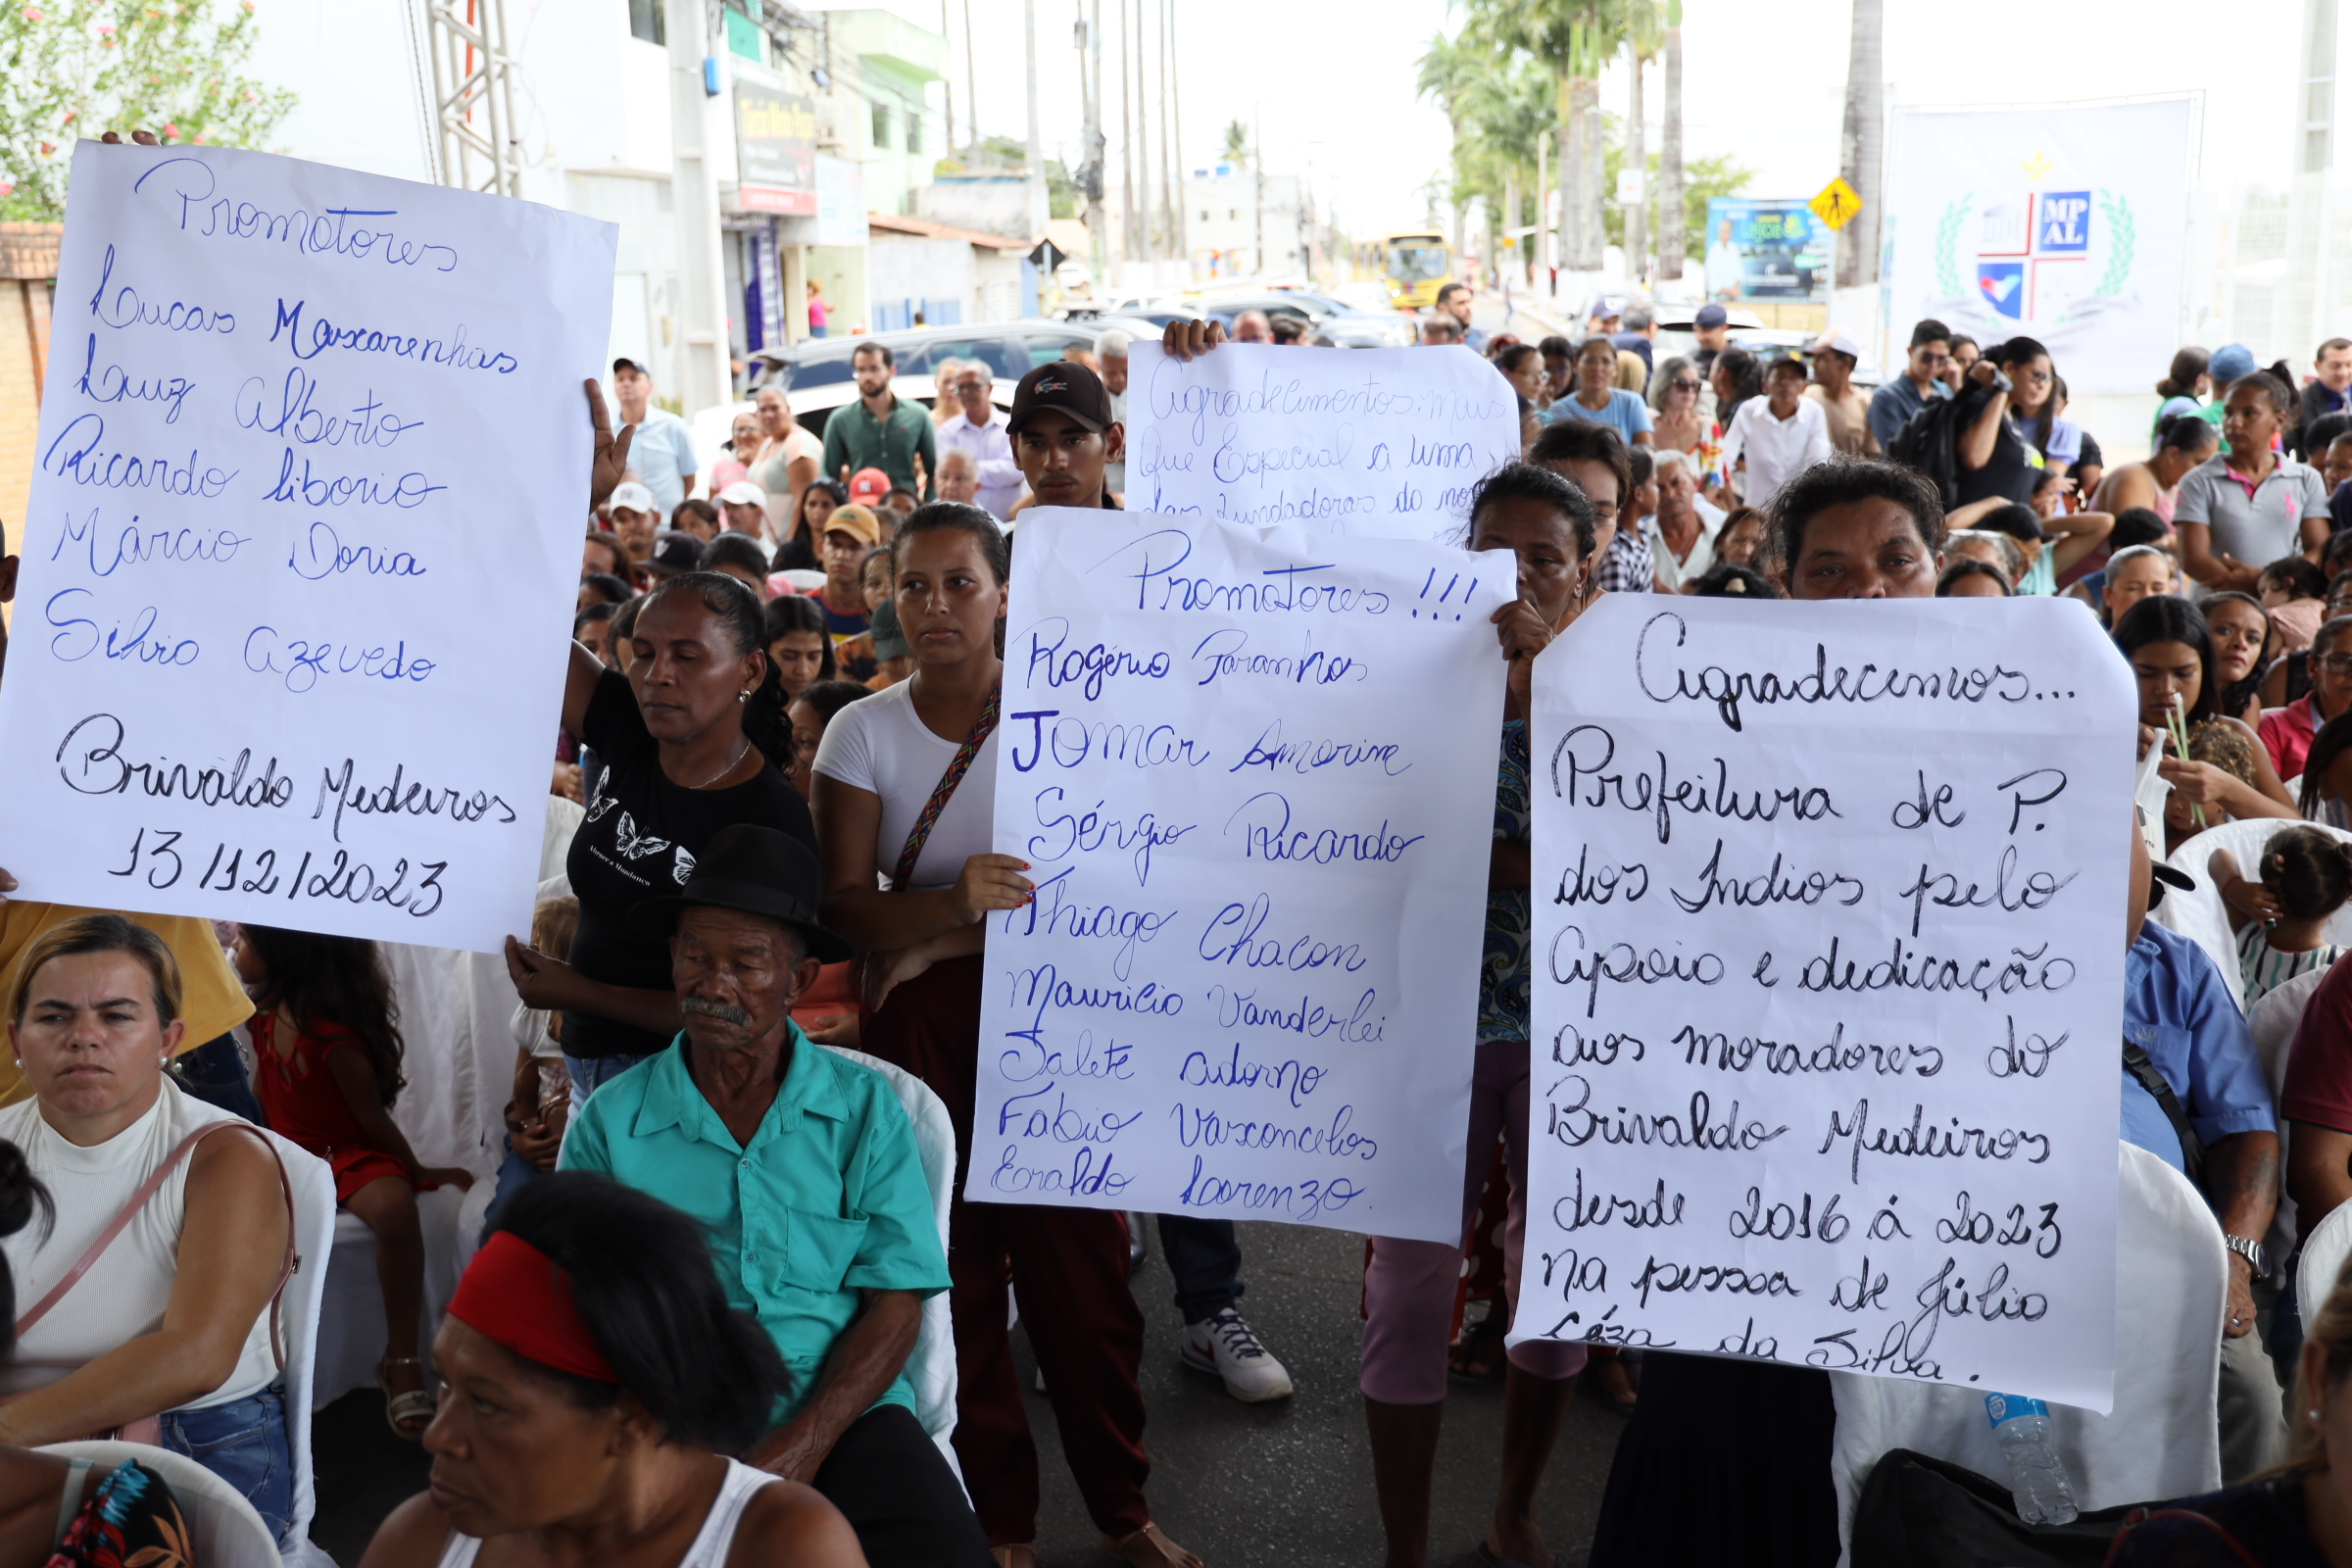 Promotores
Lucas Maxarenhas
Luiz Alberto
Ricardo Liborio
Márcio Doria
Silvio Azevedo
Brivaldo Medeiros
13/12/2023
Agradecimentos, mais
que Especial a uma
das fundadoras do
Promotores!!!
Rogério Paranhos
Jomar Amorim
Sérgio Ricardo
Thiago Chacon
Mauricio Vanderlei
Salete Adorno
Fabio Vasconcelos
Eraldo Lorenzo.
Agradecemos...
Prefeitura de P.
dos Indios pelo
Apoio e dedicação
aos moradores do
Brivaldo Medeiros
desde 2016 á 2023
na pessoa de Júlio
Céza da Silva.
MP
AL